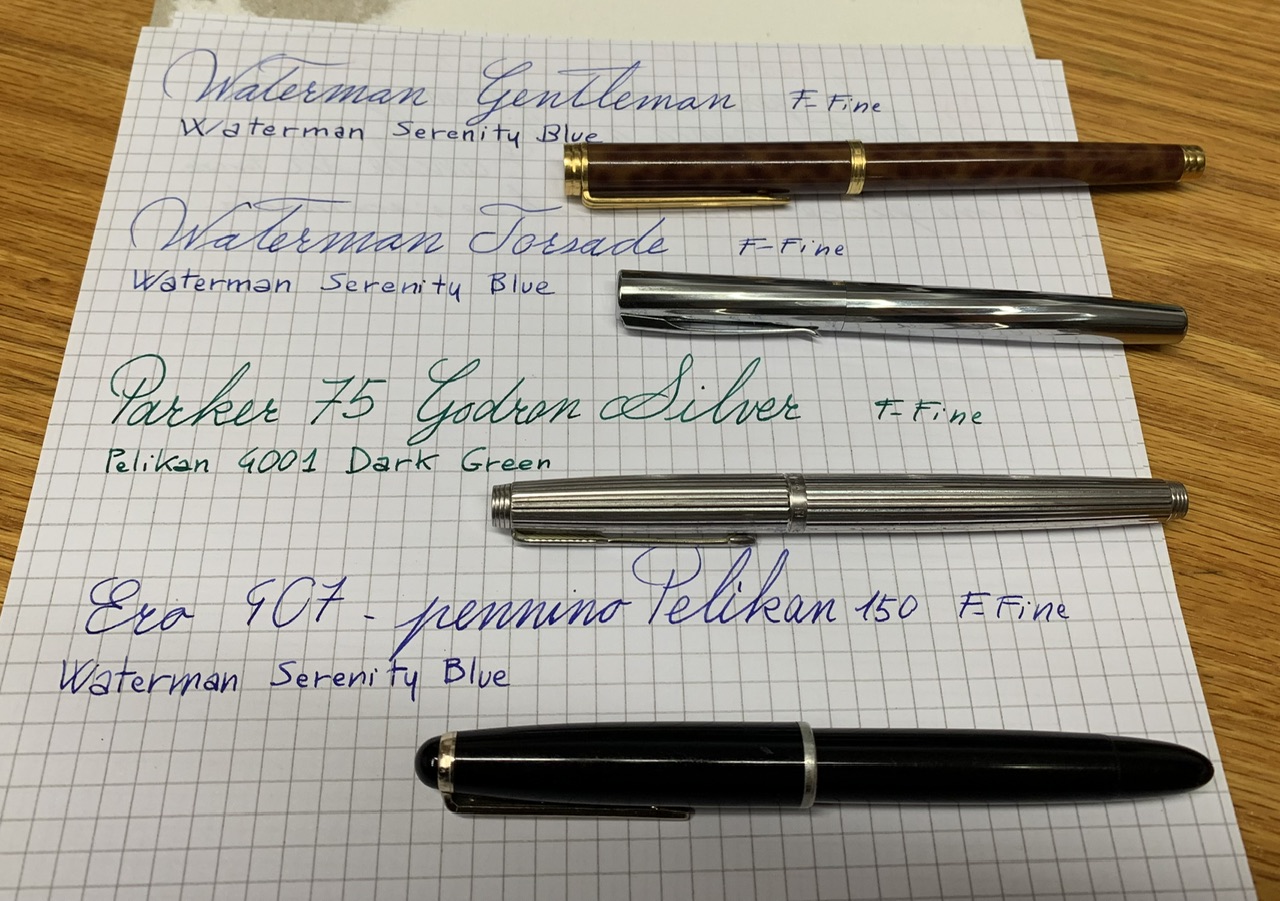 Waterman Gentleman F-Fine
Waterman Serenity Blue
Waterman Torsade F-Fine
Waterman Serenity Blue
Parker 75 Godron Silver F-Fine
Pelikan 4001 Dark Green
Ero 407 - pennino Pelikan 150 F-Fine
Waterman Serenity Blue